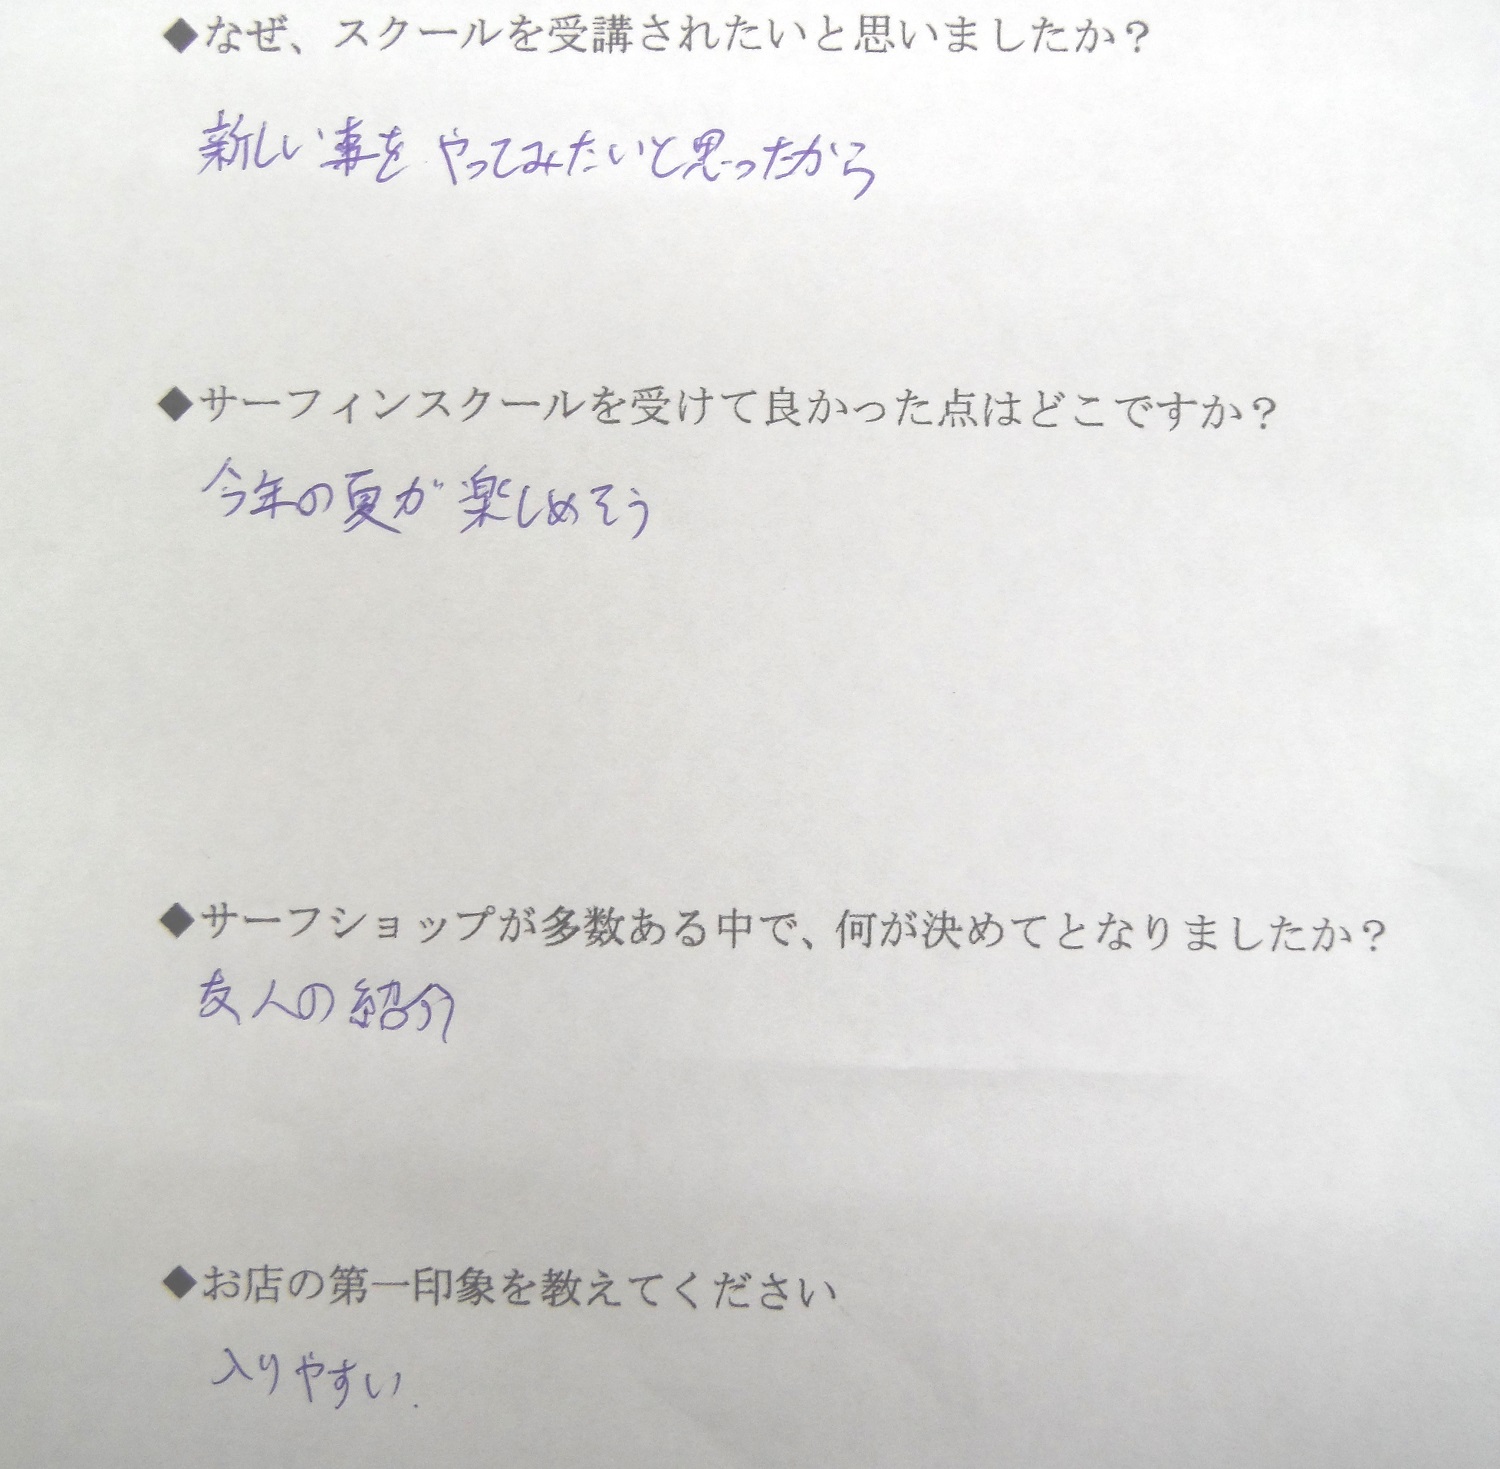 ◆なぜ、スクールを受講されたいと思いましたか？
新しい事をやってみたいと思ったから
◆サーフィンスクールを受けて良かった点はどこですか？
今年の夏が楽しめそう
◆サーフショップが多数ある中で、何が決めてとなりましたか？
友人の紹介
◆お店の第一印象を教えてください
入りやすい.